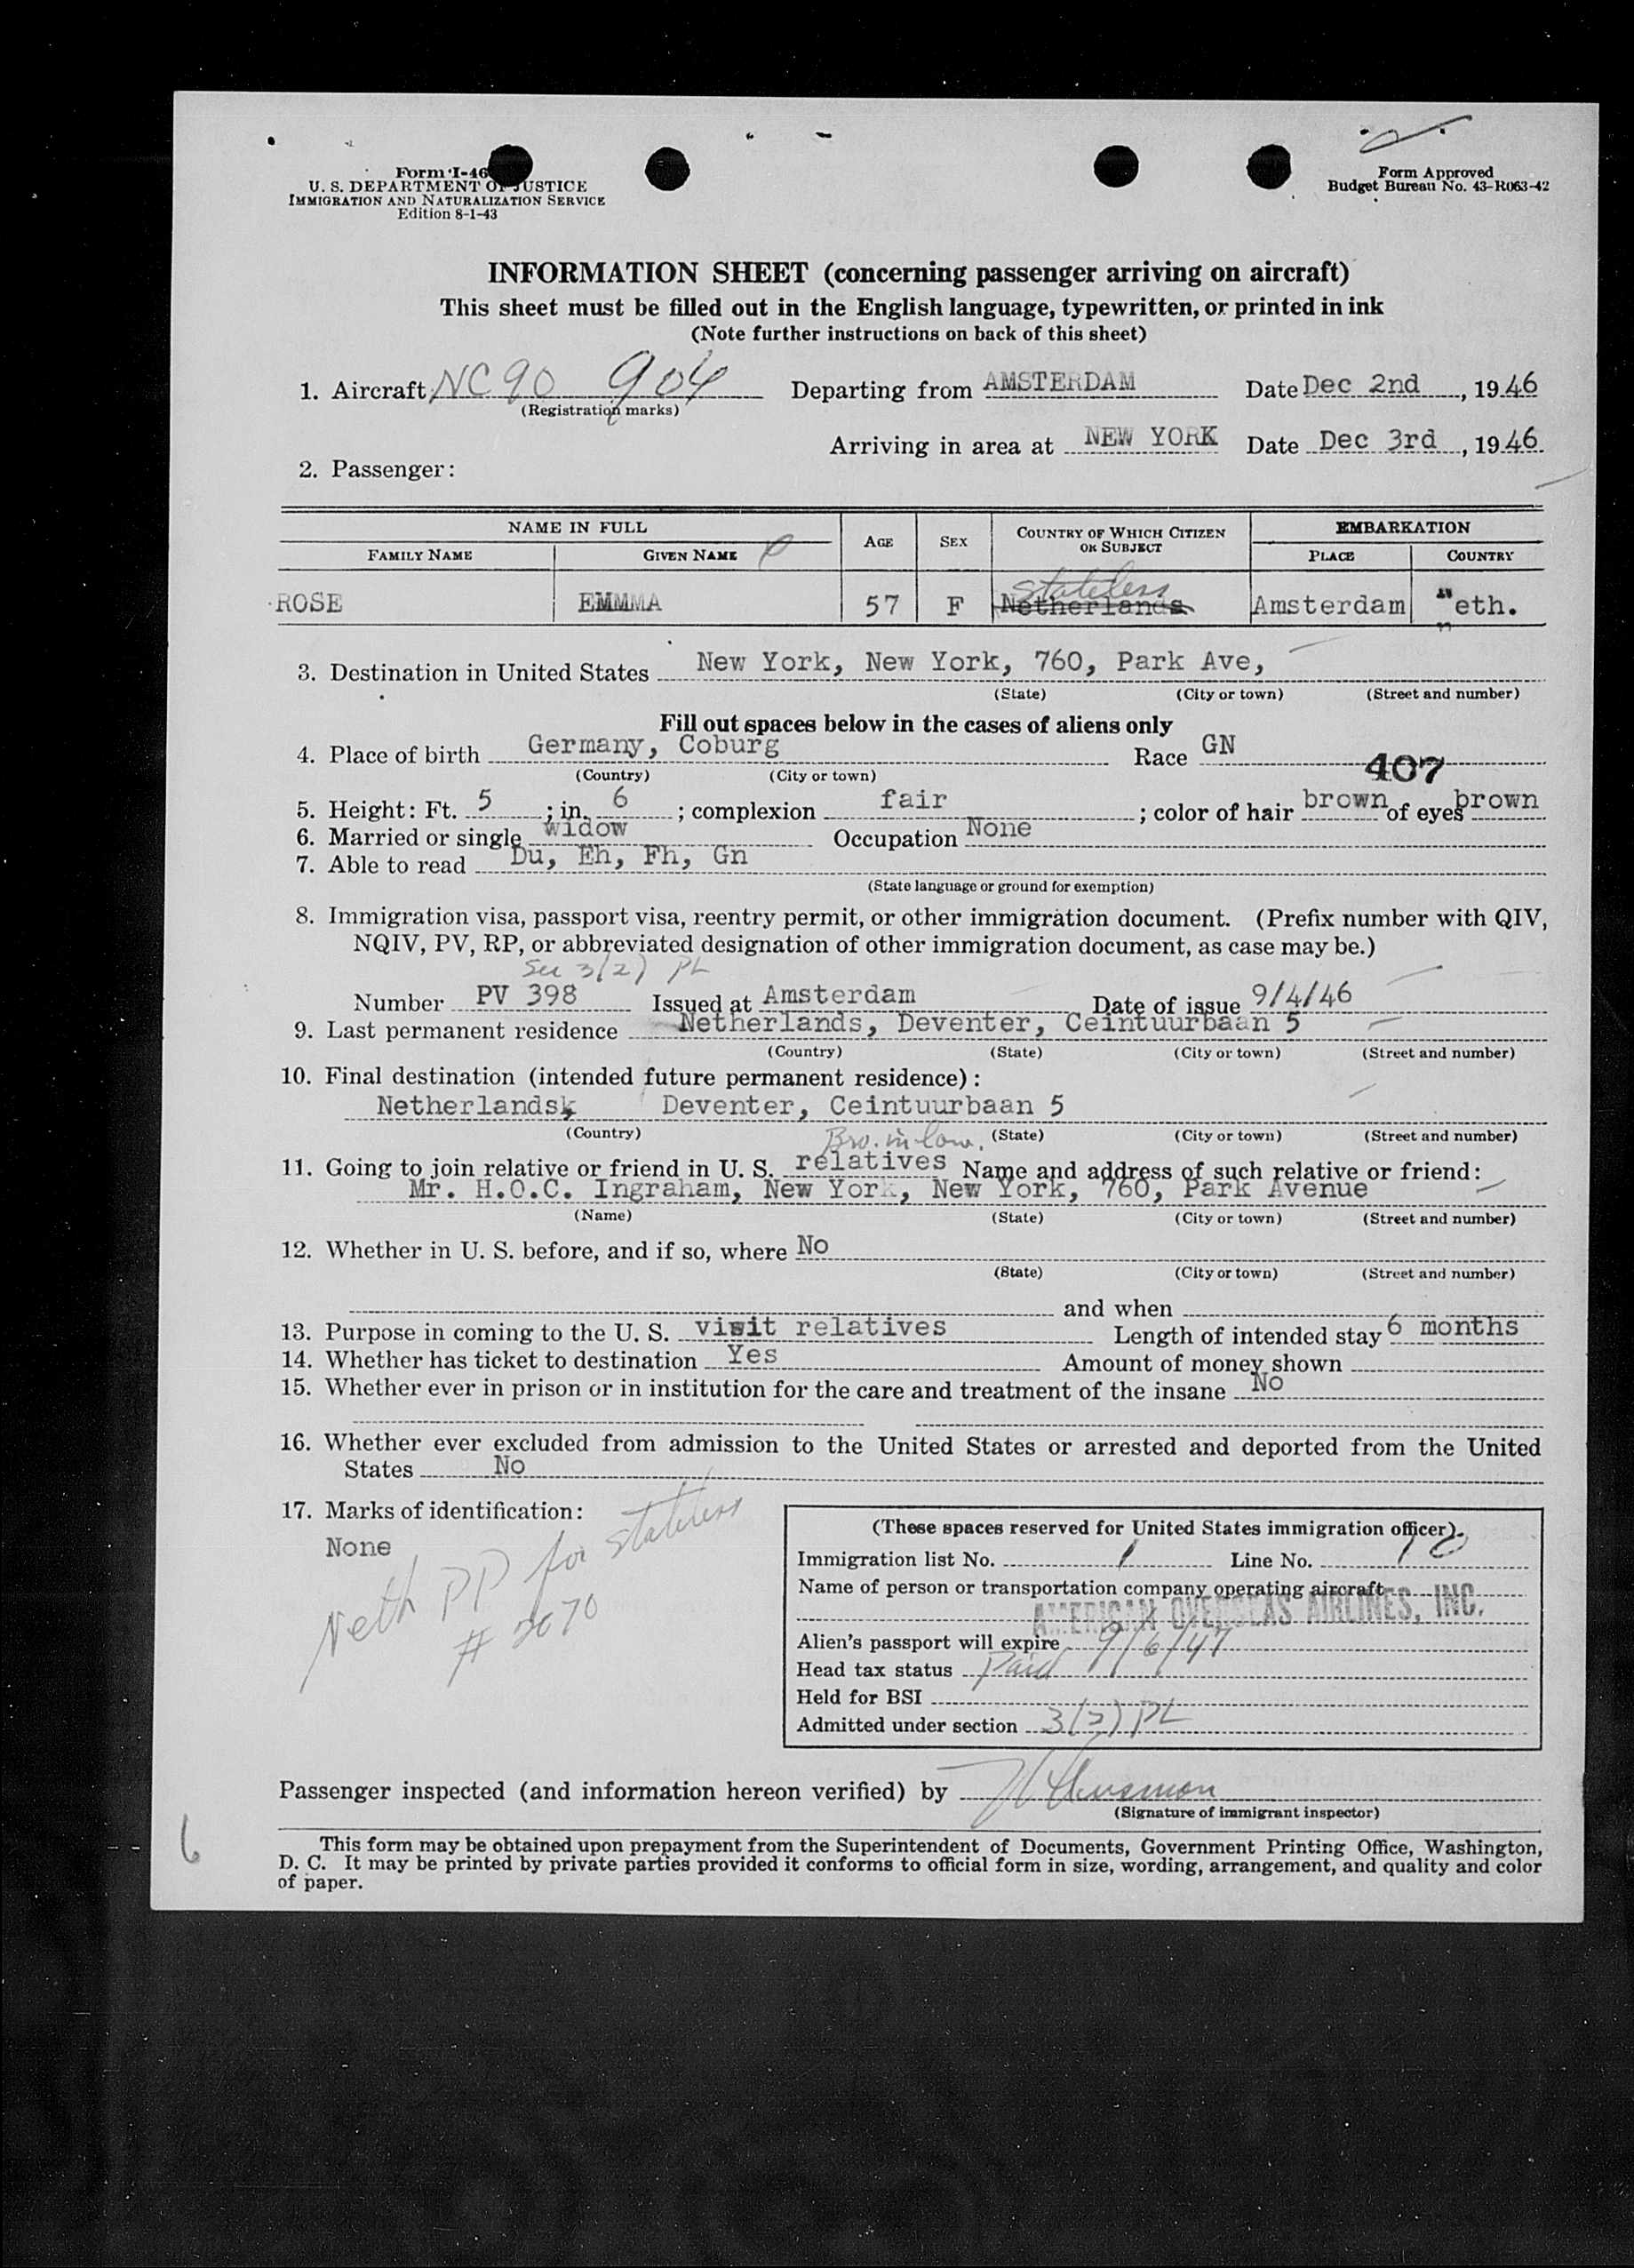 Form I-46
U. S. DEPARTMENT OF JUSTICE
IMMIGRATION AND NATURALIZATION SERVICE
Edition 8-1-43
Form Approved
Budget Bureau No. 43-R063-42
INFORMATION SHEET (concerning passenger arriving on aircraft)
This sheet must be filled out in the English language, typewritten, or printed in ink
(Note further instructions on back of this sheet)
1. Aircraft NC 90 904 Departing from AMSTERDAM Date Dec 2nd, 1946
(Registration marks)
Arriving in area at NEW YORK Date Dec 3rd, 1946
2. Passenger:
NAME IN FULL AGE SEX COUNTRY OF WHICH CITIZEN OR SUBJECT EMBARKATION
FAMILY NAME GIVEN NAME PLACE COUNTRY
stateless
ROSE EMMMA 57 F Netherlands Amsterdam Neth.
3. Destination in United States New York, New York, 760, Park Ave,
(State) (City or town) (Street and number)
Fill out spaces below in the cases of aliens only
4. Place of birth Germany, Coburg Race GN
(Country) (City or town)
407
5. Height: Ft. 5; in. 6; complexion fair; color of hair brown of eyes brown
6. Married or single widow Occupation None
7. Able to read Du, Eh, Fh, Gn
(State language or ground for exemption)
8. Immigration visa, passport visa, reentry permit, or other immigration document. (Prefix number with QIV,
NQIV, PV, RP, or abbreviated designation of other immigration document, as case may be.)
Sec 3(2) PL
Number PV 398 Issued at Amsterdam Date of issue 9/4/46
9. Last permanent residence Netherlands, Deventer, Ceintuurbaan 5
(Country) (State) (City or town) (Street and number)
10. Final destination (intended future permanent residence):
Netherlands, Deventer, Ceintuurbaan 5
(Country) (State) (City or town) (Street and number)
Bro. in law.
11. Going to join relative or friend in U. S. relatives Name and address of such relative or friend:
Mr. H.O.C. Ingraham, New York, New York, 760, Park Avenue
(Name) (State) (City or town) (Street and number)
12. Whether in U. S. before, and if so, where No
(State) (City or town) (Street and number)
and when
13. Purpose in coming to the U. S. visit relatives Length of intended stay 6 months
14. Whether has ticket to destination Yes Amount of money shown
15. Whether ever in prison or in institution for the care and treatment of the insane No
16. Whether ever excluded from admission to the United States or arrested and deported from the United
States No
17. Marks of identification:
None
Neth PP for stateless
# 2070
(These spaces reserved for United States immigration officer).
Immigration list No. 1 Line No. 10
Name of person or transportation company operating aircraft
AMERICAN OVERSEAS AIRLINES, INC.
Alien's passport will expire 9/6/47
Head tax status Paid
Held for BSI
Admitted under section 3(2) PL
Passenger inspected (and information hereon verified) by
(Signature of immigrant inspector)
6
This form may be obtained upon prepayment from the Superintendent of Documents, Government Printing Office, Washington,
D. C. It may be printed by private parties provided it conforms to official form in size, wording, arrangement, and quality and color
of paper.